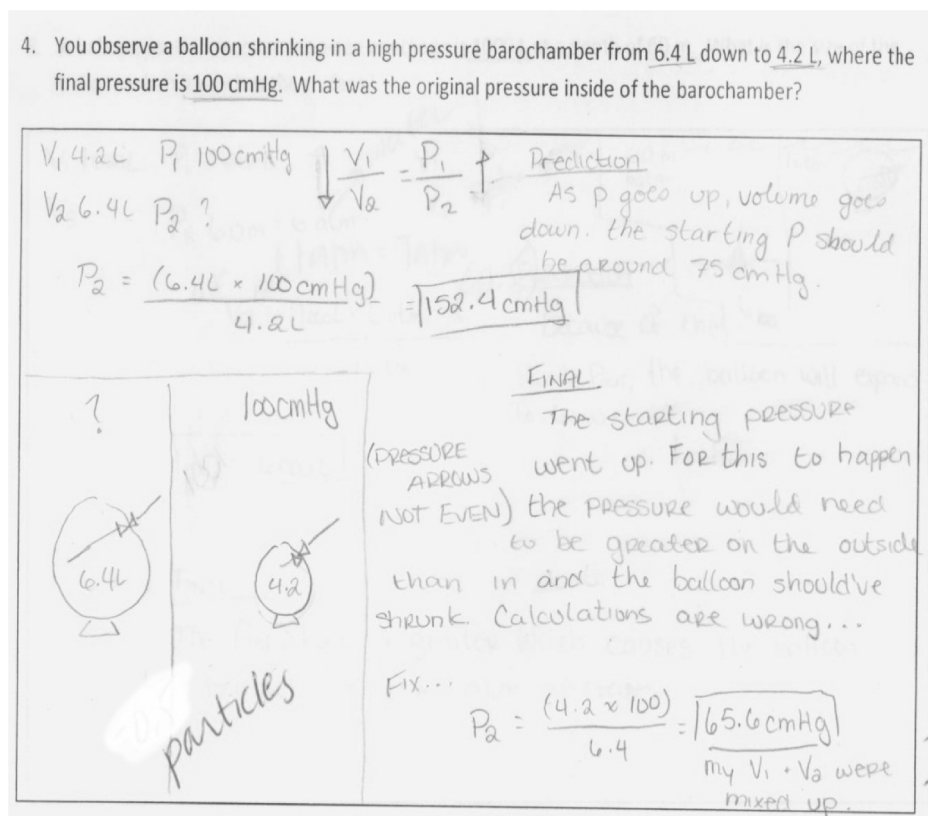 4. You observe a balloon shrinking in a high pressure barochamber from 6.4 L down to 4.2 L, where the
final pressure is 100 cmHg. What was the original pressure inside of the barochamber?
V₁ 4.2L P₁ 100cmHg ↓ V₁/V₂ = P₁/P₂ ↑
V₂ 6.4L P₂ ?
P₂ = (6.4L × 100cmHg) / 4.2L = 152.4 cmHg
Prediction
As P goes up, volume goes
down. the starting P should
be around 75 cmHg.
?
100cmHg
6.4L
4.2
particles
FINAL
The starting pressure
(PRESSURE ARROWS NOT EVEN)
went up. For this to happen
the pressure would need
to be greater on the outside
than in and the balloon should've
shrunk. Calculations are wrong...
Fix...
P₂ = (4.2 x 100) / 6.4 = 65.6cmHg
my V₁ + V₂ were
mixed up.